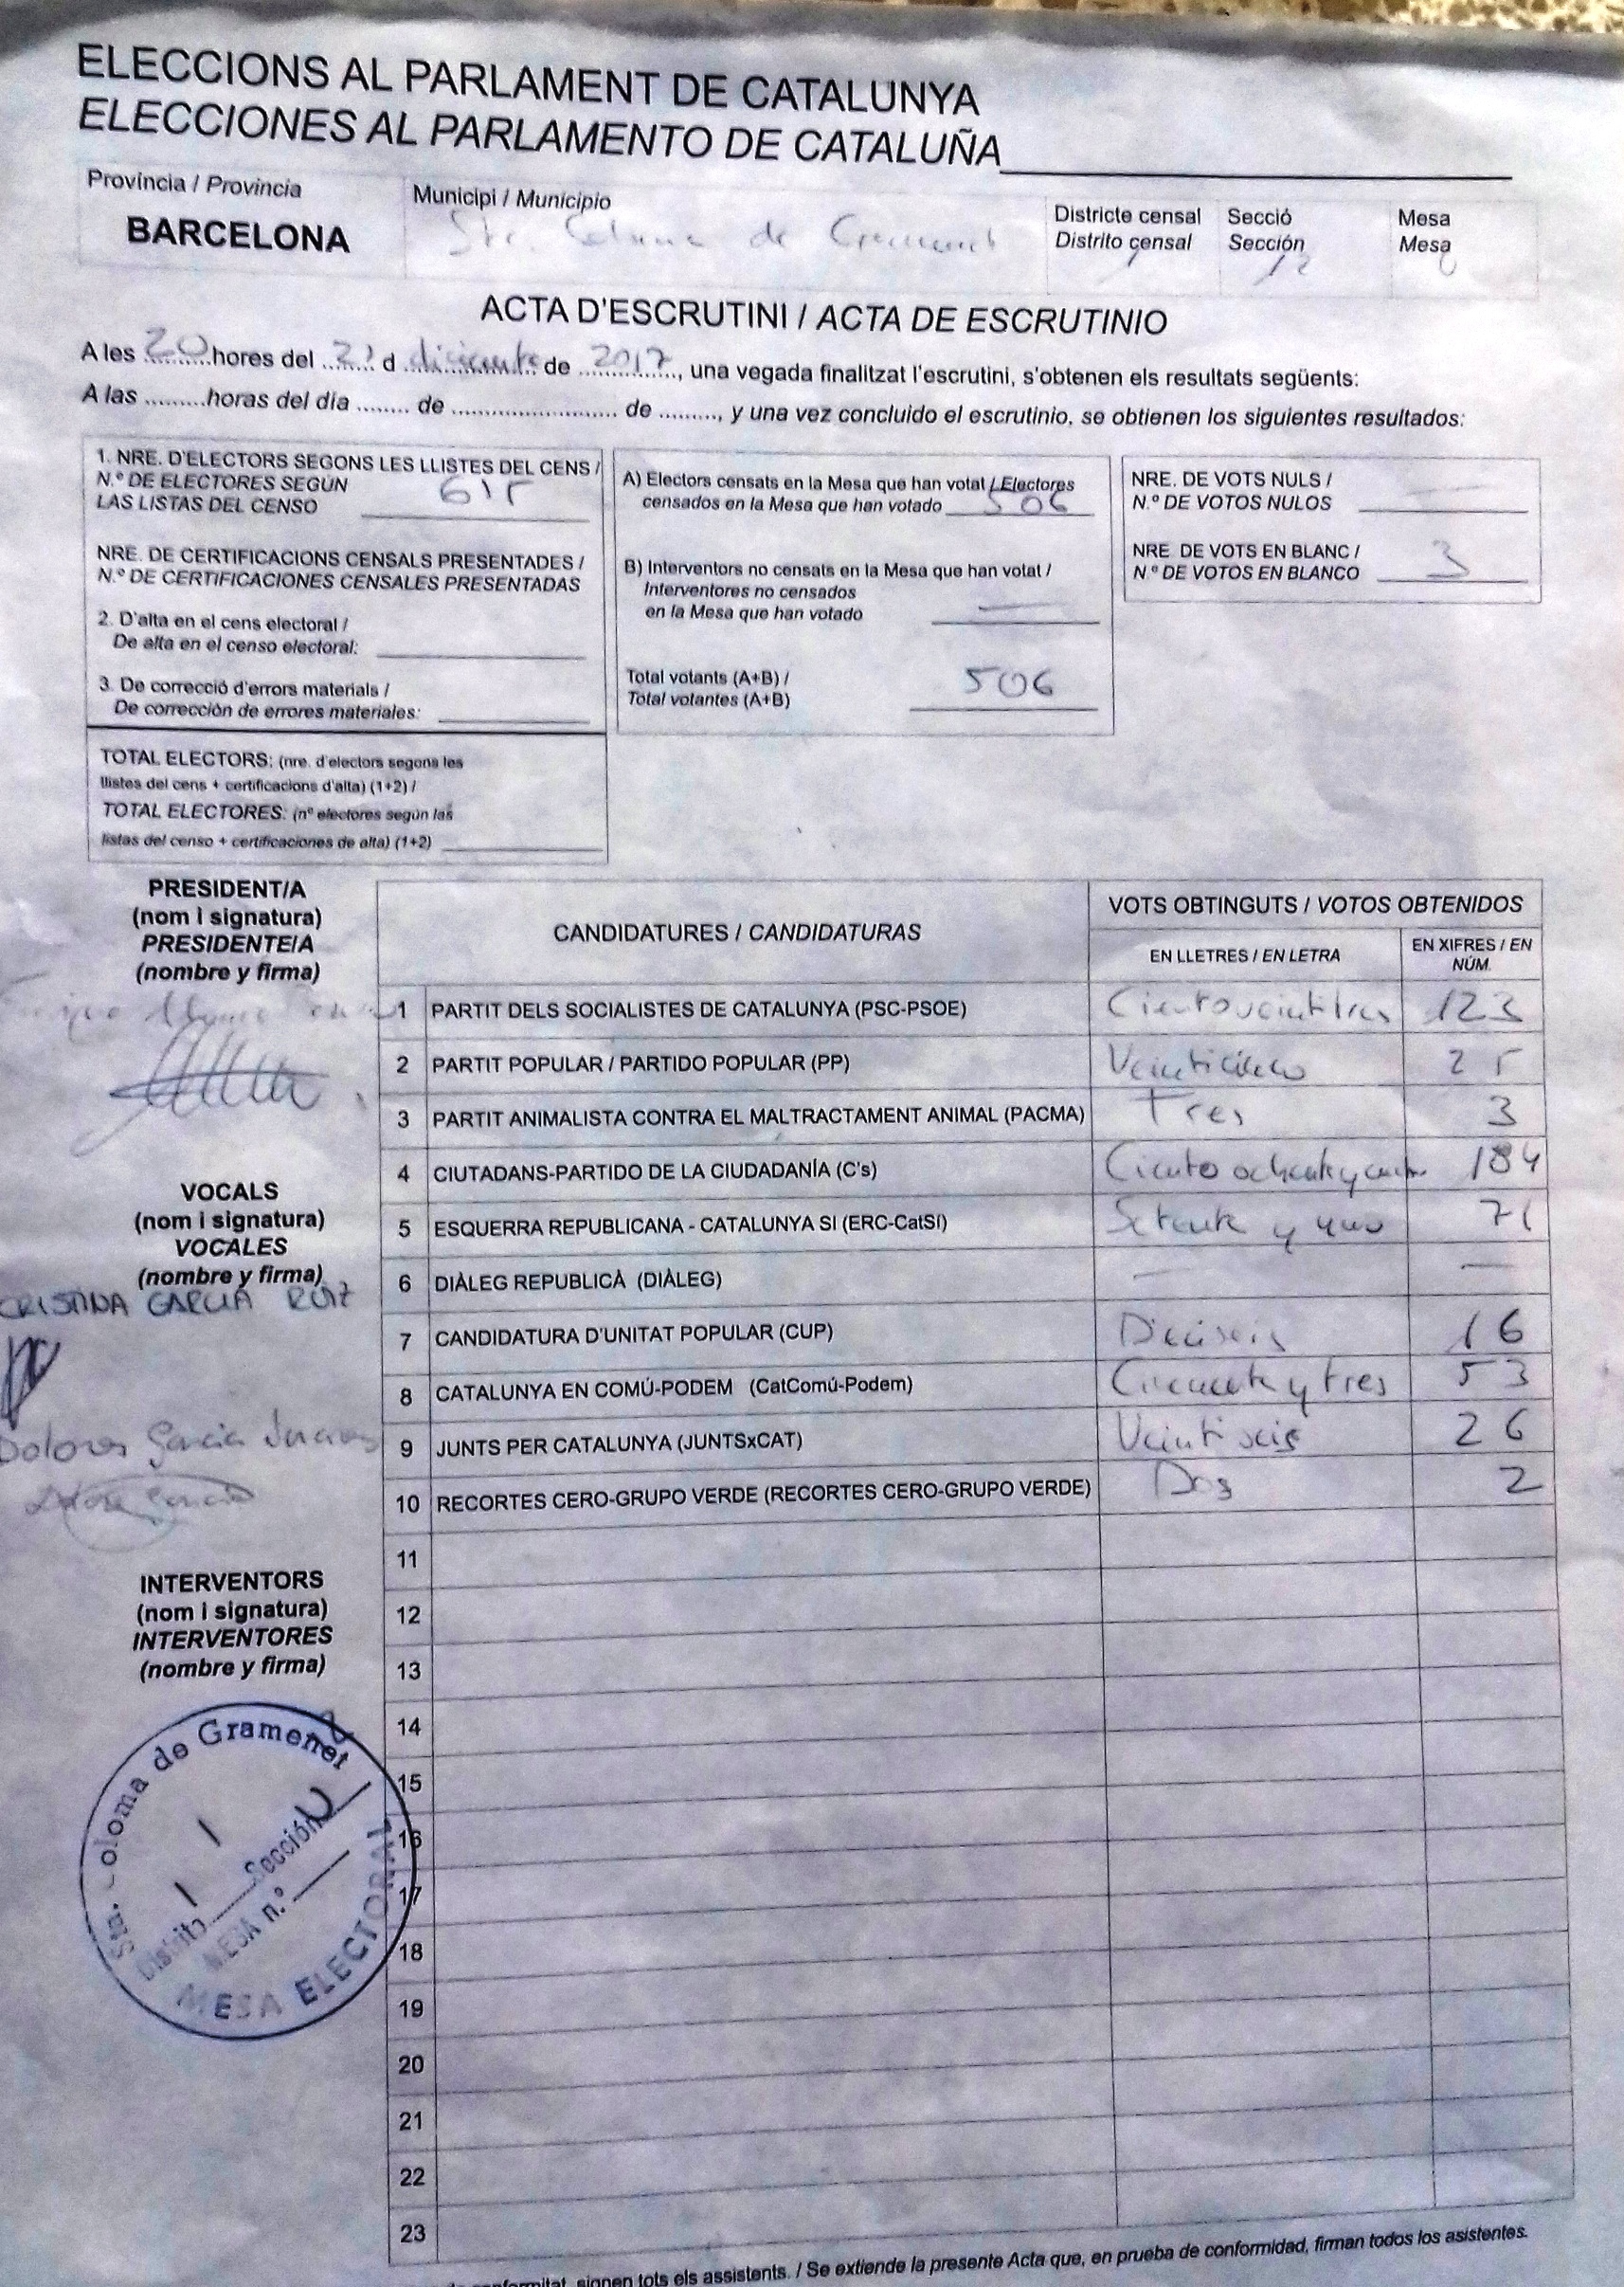 ELECCIONS AL PARLAMENT DE CATALUNYA
ELECCIONES AL PARLAMENTO DE CATALUÑA
Província / Provincia
BARCELONA
Municipi / Municipio
Sta. Coloma de Gramenet
Districte censal
Distrito censal
1
Secció
Sección
12
Mesa
Mesa
U
ACTA D'ESCRUTINI / ACTA DE ESCRUTINIO
A les 20 hores del 21 d diciembre de 2017, una vegada finalitzat l'escrutini, s'obtenen els resultats següents:
A las .........horas del día ........ de ........................ de ........., y una vez concluido el escrutinio, se obtienen los siguientes resultados:
1. NRE. D'ELECTORS SEGONS LES LLISTES DEL CENS /
N.º DE ELECTORES SEGÚN
LAS LISTAS DEL CENSO 615
NRE. DE CERTIFICACIONS CENSALS PRESENTADES /
N.º DE CERTIFICACIONES CENSALES PRESENTADAS
2. D'alta en el cens electoral /
De alta en el censo electoral:
3. De correcció d'errors materials /
De corrección de errores materiales:
TOTAL ELECTORS: (nre. d'electors segons les
llistes del cens + certificacions d'alta) (1+2) /
TOTAL ELECTORES: (nº electores según las
listas del censo + certificaciones de alta) (1+2)
A) Electors censats en la Mesa que han votat / Electores
censados en la Mesa que han votado 506
B) Interventors no censats en la Mesa que han votat /
Interventores no censados
en la Mesa que han votado —
Total votants (A+B) /
Total votantes (A+B) 506
NRE. DE VOTS NULS /
N.º DE VOTOS NULOS —
NRE. DE VOTS EN BLANC /
N.º DE VOTOS EN BLANCO 3
PRESIDENT/A
(nom i signatura)
PRESIDENTE/A
(nombre y firma)
VOCALS
(nom i signatura)
VOCALES
(nombre y firma)
CRISTINA GARCIA RUIZ
Dolores Garcia
Dolores Garcia
INTERVENTORS
(nom i signatura)
INTERVENTORES
(nombre y firma)
CANDIDATURES / CANDIDATURAS
VOTS OBTINGUTS / VOTOS OBTENIDOS
EN LLETRES / EN LETRA
EN XIFRES / EN NÚM.
1 PARTIT DELS SOCIALISTES DE CATALUNYA (PSC-PSOE) Ciento veintitres 123
2 PARTIT POPULAR / PARTIDO POPULAR (PP) Veinticinco 25
3 PARTIT ANIMALISTA CONTRA EL MALTRACTAMENT ANIMAL (PACMA) Tres 3
4 CIUTADANS-PARTIDO DE LA CIUDADANÍA (C's) Ciento ochenta y cuatro 184
5 ESQUERRA REPUBLICANA - CATALUNYA SI (ERC-CatSí) Setenta y uno 71
6 DIÀLEG REPUBLICÀ (DIÀLEG) — —
7 CANDIDATURA D'UNITAT POPULAR (CUP) Dieciseis 16
8 CATALUNYA EN COMÚ-PODEM (CatComú-Podem) Cincuenta y tres 53
9 JUNTS PER CATALUNYA (JUNTSxCAT) Veintiseis 26
10 RECORTES CERO-GRUPO VERDE (RECORTES CERO-GRUPO VERDE) Dos 2
11
12
13
14
15
16
17
18
19
20
21
22
23
Sta. Coloma de Gramenet
Distrito 1 Sección
MESA n.º U
MESA ELECTORAL
signen tots els assistents. / Se extiende la presente Acta que, en prueba de conformidad, firman todos los asistentes.